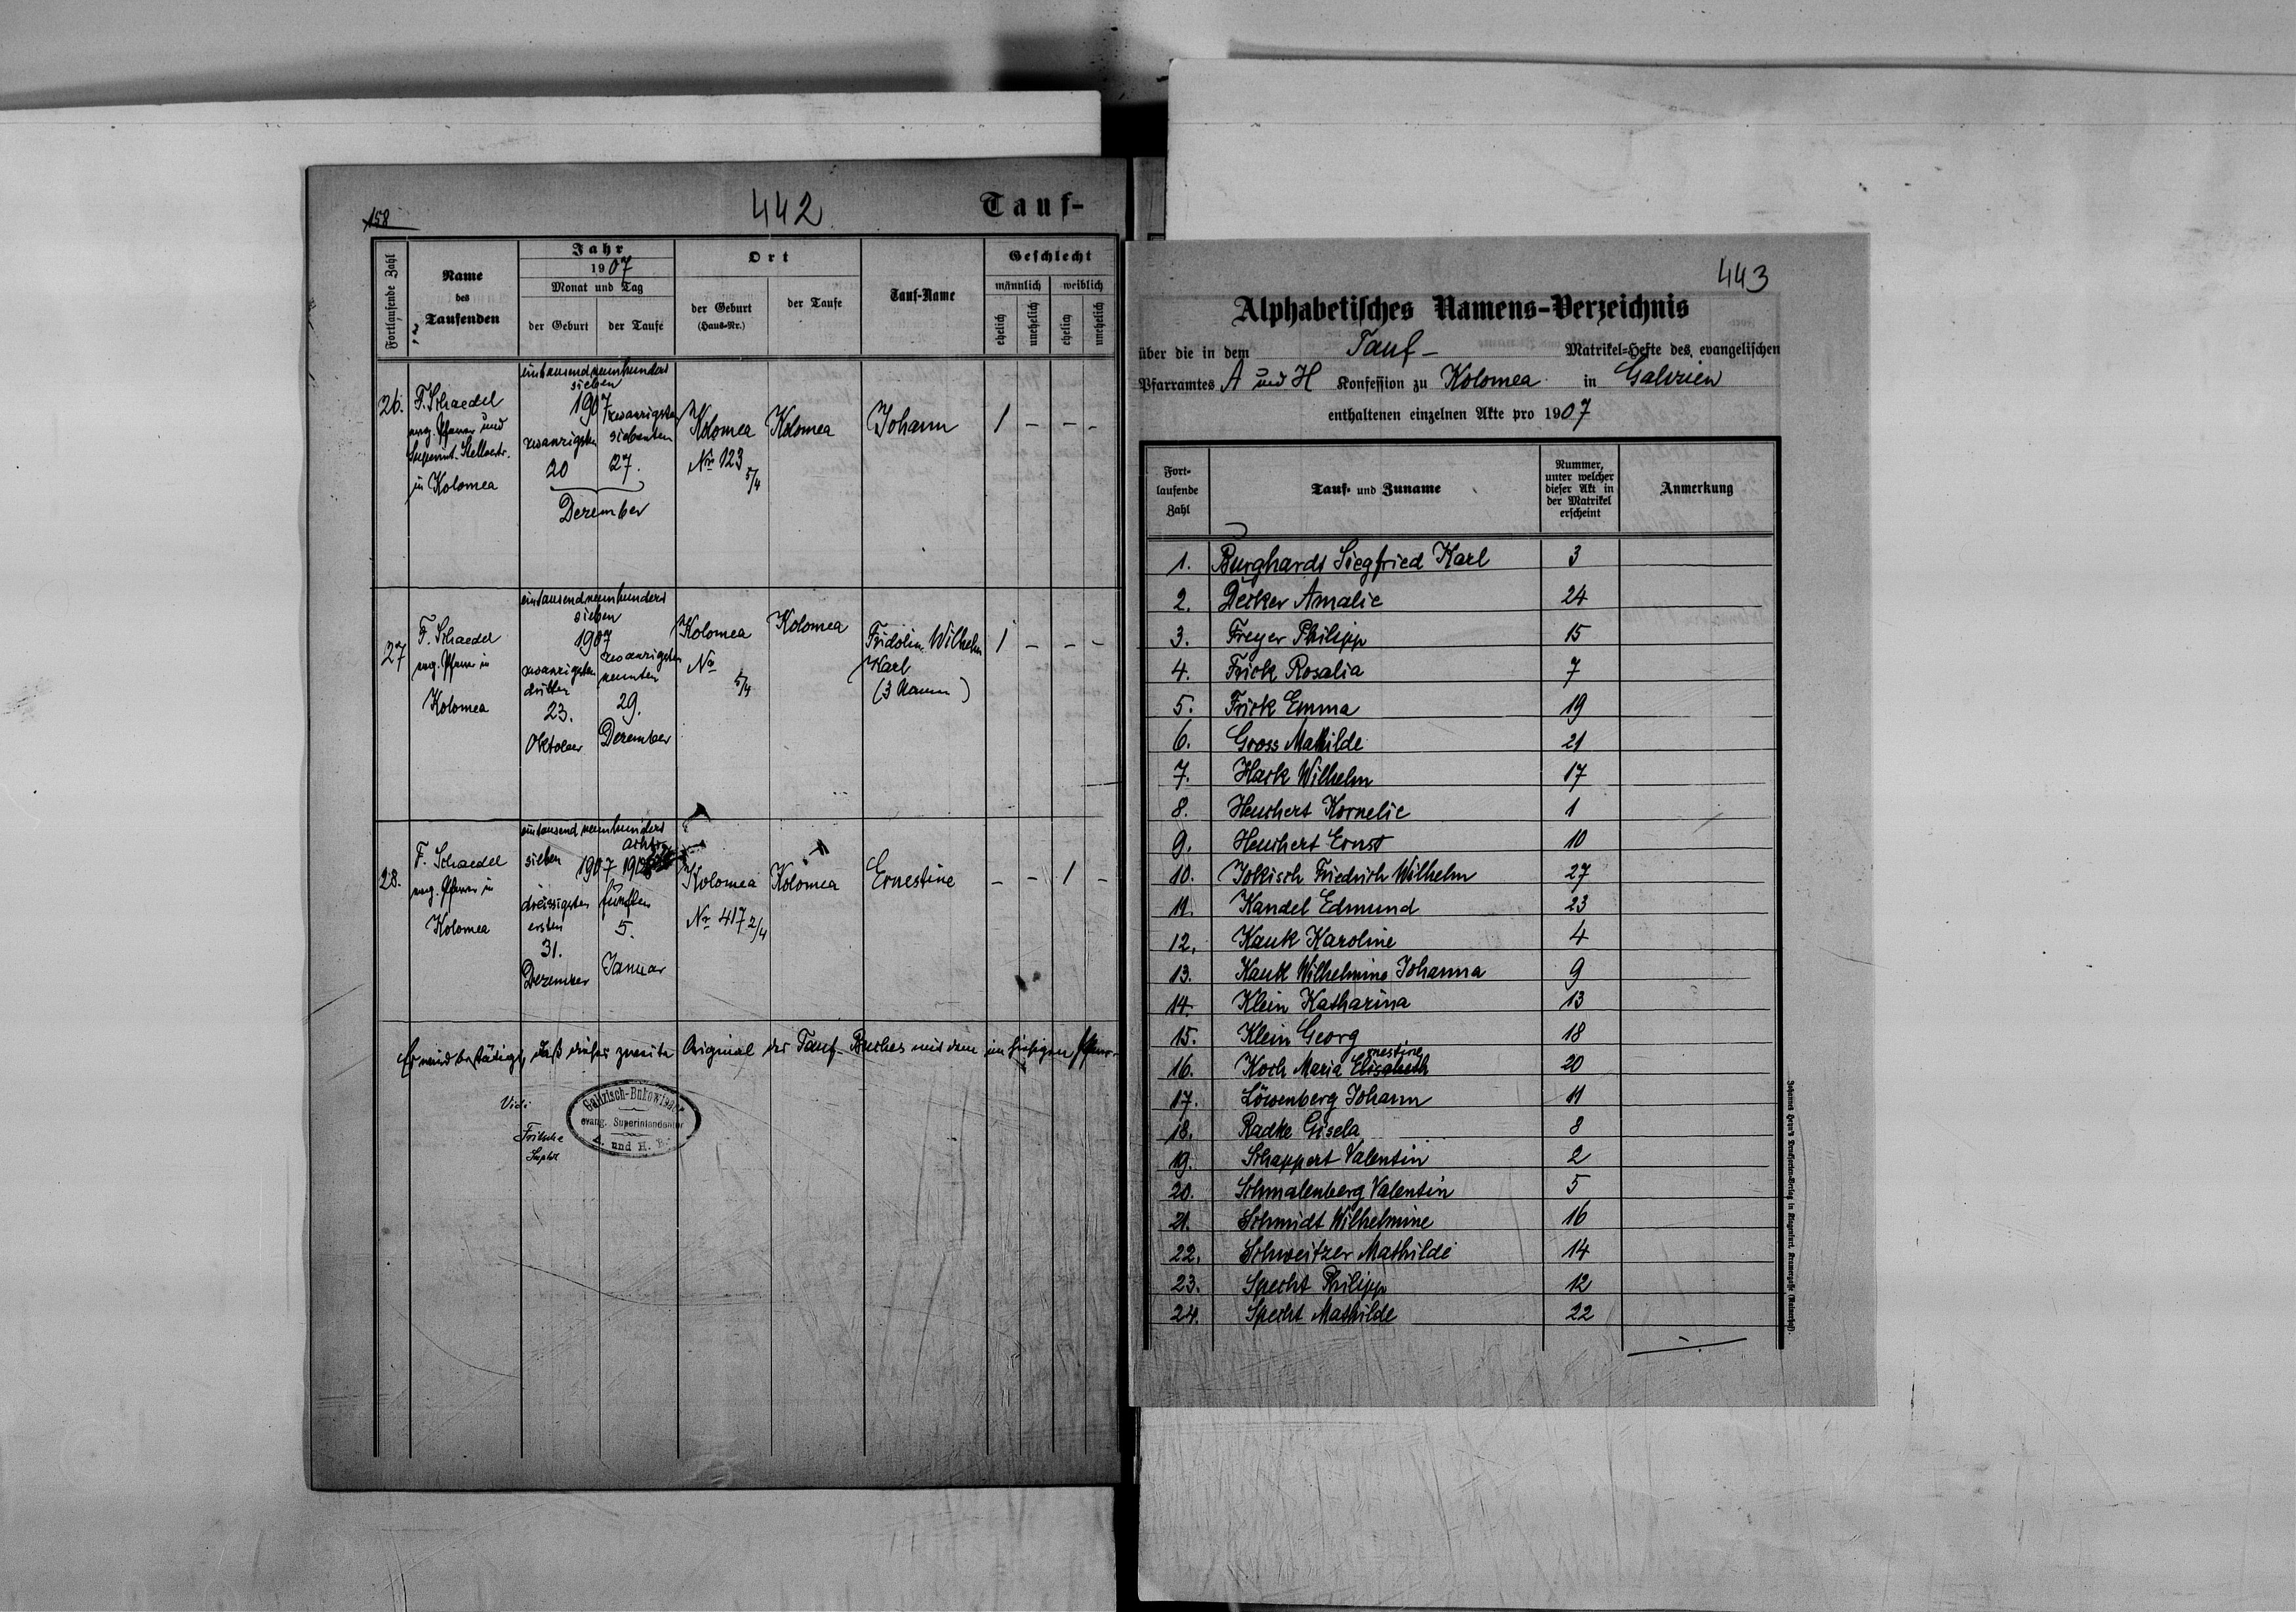 158
442
Tauf-
Fortlaufende Zahl
Name
des
Taufenden
Jahr
1907
Monat und Tag
der Geburt
der Taufe
Ort
der Geburt
(Haus-Nr.)
der Taufe
Tauf-Name
Geschlecht
männlich
weiblich
ehelich
unehelich
ehelich
unehelich
26.
F. Schaedel
evg. Pfarrer und
in Kolomea
eintausendneunhundert
sieben
1907
zwanzigsten
20
zwanzigsten
siebenten
27.
Dezember
Kolomea
No 123
5/4
Kolomea
Johann
1 - - -
27
F. Schaedel
evg. Pfarrer in
Kolomea
eintausendneunhundert
sieben
1907
zwanzigsten
dritten
23.
Oktober
zwanzigsten
neunten
29.
Dezember
Kolomea
No
5/4
Kolomea
Fridolin Wilhelm
Karl
(3 Namen)
1 - - -
28.
F. Schaedel
evg. Pfarrer in
Kolomea
eintausend neunhundert
sieben
1907
dreissigsten
ersten
31.
Dezember
acht
fünften
5.
Januar
Kolomea
No 417 2/4
Kolomea
Ernestine
- - 1 -
Es wird bestätigt, daß dieses zweite Original des Tauf-Buches mit dem im hiesigen Pfarr-
Vidi
Fritsche
Suptdt
Galizisch-Bukowinaer
evang. Superintendentur
A. und H. B.
443
Alphabetisches Namens-Verzeichnis
über die in dem Tauf- Matrikel-Hefte des evangelischen
Pfarramtes A und H Konfession zu Kolomea in Galizien
enthaltenen einzelnen Akte pro 1907
Fort-
laufende
Zahl
Tauf- und Zuname
Nummer,
unter welcher
dieser Akt in
der Matrikel
erscheint
Anmerkung
1. Burghardt Siegfried Karl 3
2. Decker Amalie 24
3. Freyer Philipp 15
4. Frick Rosalia 7
5. Frick Emma 19
6. Gross Mathilde 21
7. Hack Wilhelm 17
8. Heuchert Kornelie 1
9. Heuchert Ernst 10
10. Jokisch Friedrich Wilhelm 27
11. Kandel Edmund 23
12. Kauk Karoline 4
13. Kauk Wilhelmine Johanna 9
14. Klein Katharina 13
15. Klein Georg 18
16. Koch Maria Elisabeth rnestine 20
17. Löwenberg Johann 11
18. Radke Gisela 8
19. Schappert Valentin 2
20. Schmalenberg Valentin 5
21. Schmidt Wilhelmine 16
22. Schweitzer Mathilde 14
23. Specht Philipp 12
24. Specht Mathilde 22